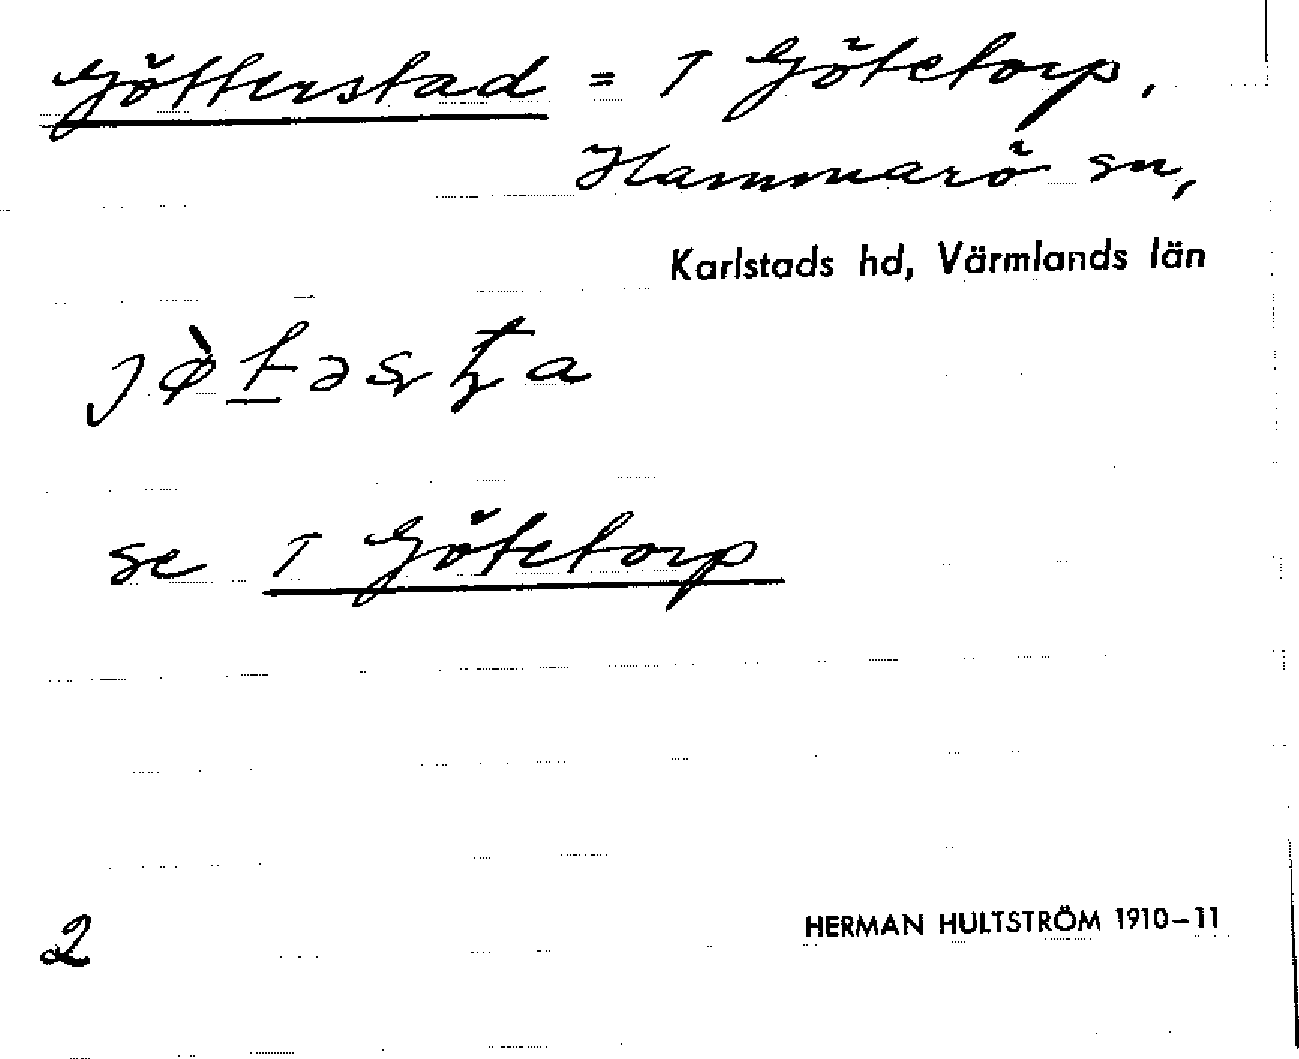 Götterstad = T Götetorp,
Hammarö sn,
Karlstads hd, Värmlands län
se T Götetorp
2 HERMAN HULTSTRÖM 1910–11